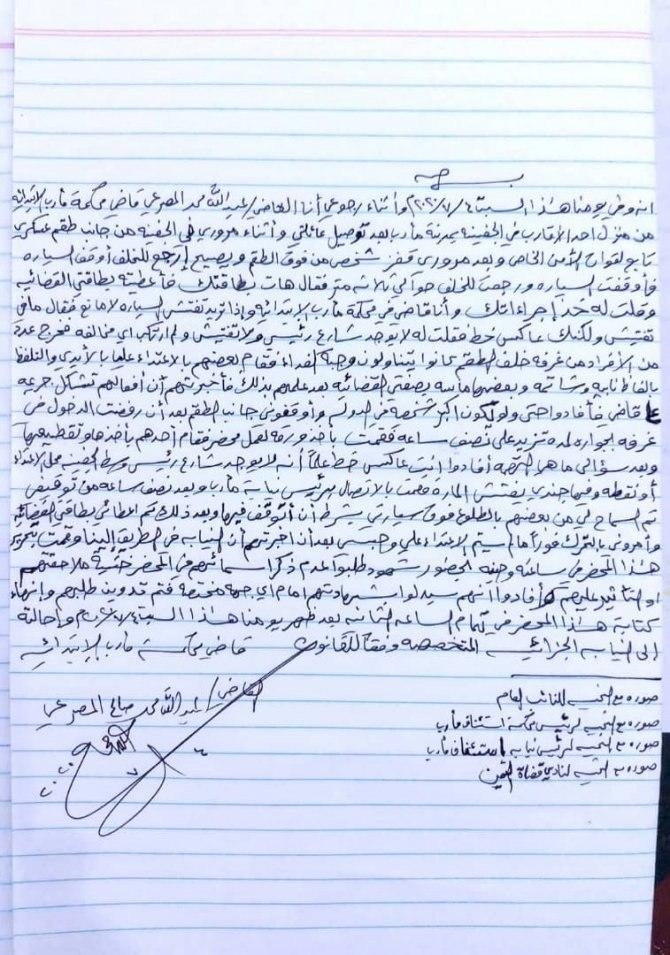 انه وفي يومنا هذا السبت ٤/٧/٢٠٢٠م وأثناء رجوعي أنا القاضي/ عبدالله محمد المصرعي قاضي محكمة مأرب الابتدائية
من منزل احد الاقارب في الجفينه بمدينة مأرب بعد توصيل عائلتي وأثناء مروري في الجفينه من جانب طقم عسكري
تابع لقوات الأمن الخاص وبعد مروري قفز شخص من فوق الطقم ويصيح إرجع للخلف أوقف السياره
فأوقفت السياره ورجعت للخلف حوالي ثلاثه متر فقال هات بطاقتك فأعطيته بطاقتي القضائيه
وقلت له خذ إجراءاتك وأنا قاضي في محكمة مأرب الابتدائيه وإذا تريد تفتش السياره لا مانع فقال ما في
تفتيش ولكنك عاكس خط فقلت له لا يوجد شارع رئيسي ولا تفتيش ولم ارتكب اي مخالفه فخرج عدة
من الأفراد من غرفه خلف الطقم كانوا يتناولون وجبة الغداء فقام بعضهم بالاعتداء عليا بالأيدي والتلفظ
بالفاظ نابيه وشاتمه وبعضها ماسه بصفتي القضائيه بعد علمهم بذلك فأخبرتهم أن أفعالهم تشكل جريمه
قاضي فأفادوا حتى ولو تكون اكبر شخصيه في الدوله وأوقفوني جانب الطقم بعد أن رفضت الدخول في
غرفه بجواره لمده تزيد على نصف ساعه فقمت بأخذ ورقه لعمل محضر فقام أحدهم بأخذها وتقطيعها
وبعد سؤالي ما هي التهمه أفادوا انت عاكس خط علماً أنه لا يوجد شارع رئيسي وسط الجفينه محل الاعتداء
أو نقطه وفيها جندي يفتش الماره فقمت بالاتصال برئيس نيابة مأرب وبعد نصف ساعه من توقيفي
تم السماح لي من بعضهم بالطلوع فوق سيارتي بشرط أن أتوقف فيها وبعد ذلك تم اعطائي بطاقتي القضائيه
وأمروني بالتحرك فوراً أمام سيتم الاعتداء علي وحبسي بعد أن اخبرتهم أن النيابه في الطريق إلينا وقمت بتحرير
هذا المحضر في ساعته وحينه بحضور شهود وطلبوا عدم ذكر اسمائهم في المحضر خشية ملاحقتهم
أفادوا أنهم سيدلوا بشهادتهم امام اي جهه مختصه فتم تدوين طلبهم وانهاء
كتابة هذا المحضر في تمام الساعه الثانيه بعد ظهر يومنا هذا السبت ٤/٧/٢٠٢٠م واحالته
إلى النيابه الجزائيه المتخصصه وفقاً للقانون قاضي محكمة مأرب الابتدائيه
القاضي/ عبدالله محمد صالح المصرعي
٤
٧
٢٠٢٠
صوره مع التحيه للنائب العام
صوره مع التحيه لرئيس محكمة استئناف مأرب
صوره مع التحيه لرئيس نيابة استئناف مأرب
صوره مع التحيه لنادي قضاة اليمن